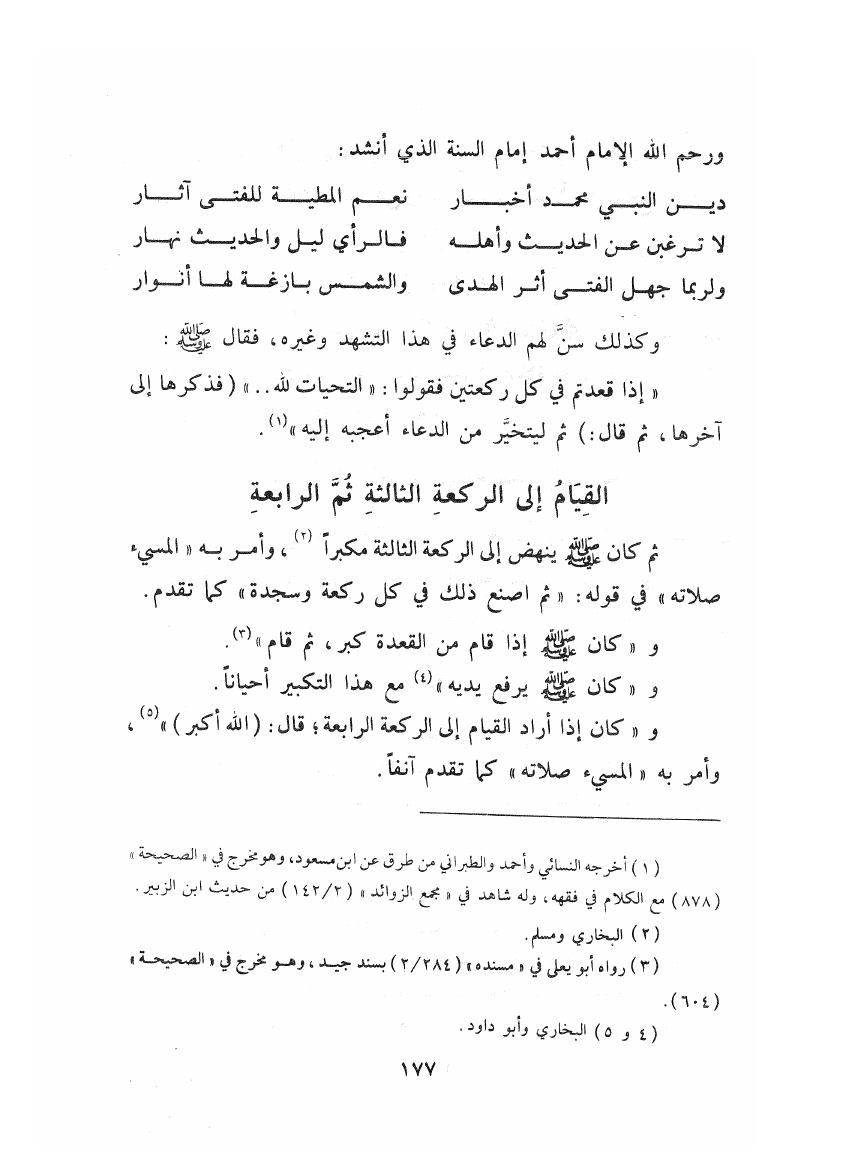 ورحم الله الإمام أحمد إمام السنة الذي أنشد :
ديـــن النبـــي محمـــد أخبـــار نعـــم المطيـــة للفتـــى آثـــار
لا تـرغبن عـن الحديـث وأهلـه فـالـرأي ليـل والحديـث نهـار
ولربما جهـل الفتـى أثـر الهـدى والشمـس بـازغـة لهـا أنـوار
وكذلك سنَّ لهم الدعاء في هذا التشهد وغيره ، فقال ﷺ :
« إذا قعدتم في كل ركعتين فقولوا : « التحيات لله .. » ( فذكرها إلى
آخرها ، ثم قال : ) ثم ليتخيَّر من الدعاء أعجبه إليه »(١) .
القِيَامُ إلى الركعةِ الثالثةِ ثُمَّ الرابعةِ
ثم كان ﷺ ينهض إلى الركعة الثالثة مكبراً (٢) ، وأمـر بـه « المسيء
صلاته » في قوله : « ثم اصنع ذلك في كل ركعة وسجدة » كما تقدم .
و « كان ﷺ إذا قام من القعدة كبر ، ثم قام »(٣) .
و « كان ﷺ يرفع يديه »(٤) مع هذا التكبير أحياناً .
و « كان إذا أراد القيام إلى الركعة الرابعة ؛ قال : ( الله أكبر ) »(٥) ،
وأمر به « المسيء صلاته » كما تقدم آنفاً .
( ١ ) أخرجه النسائي وأحمد والطبراني من طرق عن ابن مسعود، وهو مخرج في « الصحيحة »
( ٨٧٨ ) مع الكلام في فقهه ، وله شاهد في « مجمع الزوائد » ( ١٤٢/٢ ) من حديث ابن الزبير .
( ٢ ) البخاري ومسلم .
( ٣ ) رواه أبو يعلى في « مسنده » ( ٢/٢٨٤ ) بسند جيـد ، وهـو مخرج في « الصحيحـة »
( ٦٠٤ ) .
( ٤ و ٥ ) البخاري وأبو داود .
١٧٧